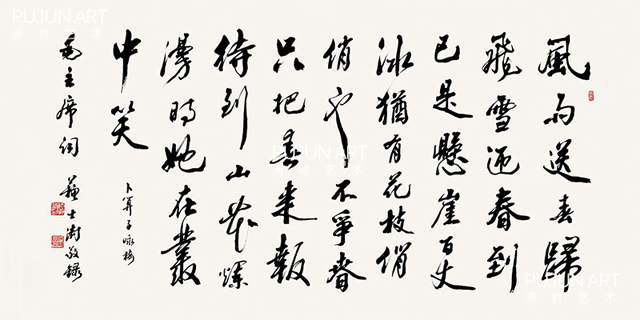 風雨送春歸
飛雪迎春到
已是懸崖百丈
冰猶有花枝俏
俏也不爭春
只把春來報
待到山花爛
漫時她在叢
中笑
卜算子詠梅
毛主席詞 蘇士澍敬錄
PUJUN ART
PUJUN ART
PUJUN ART